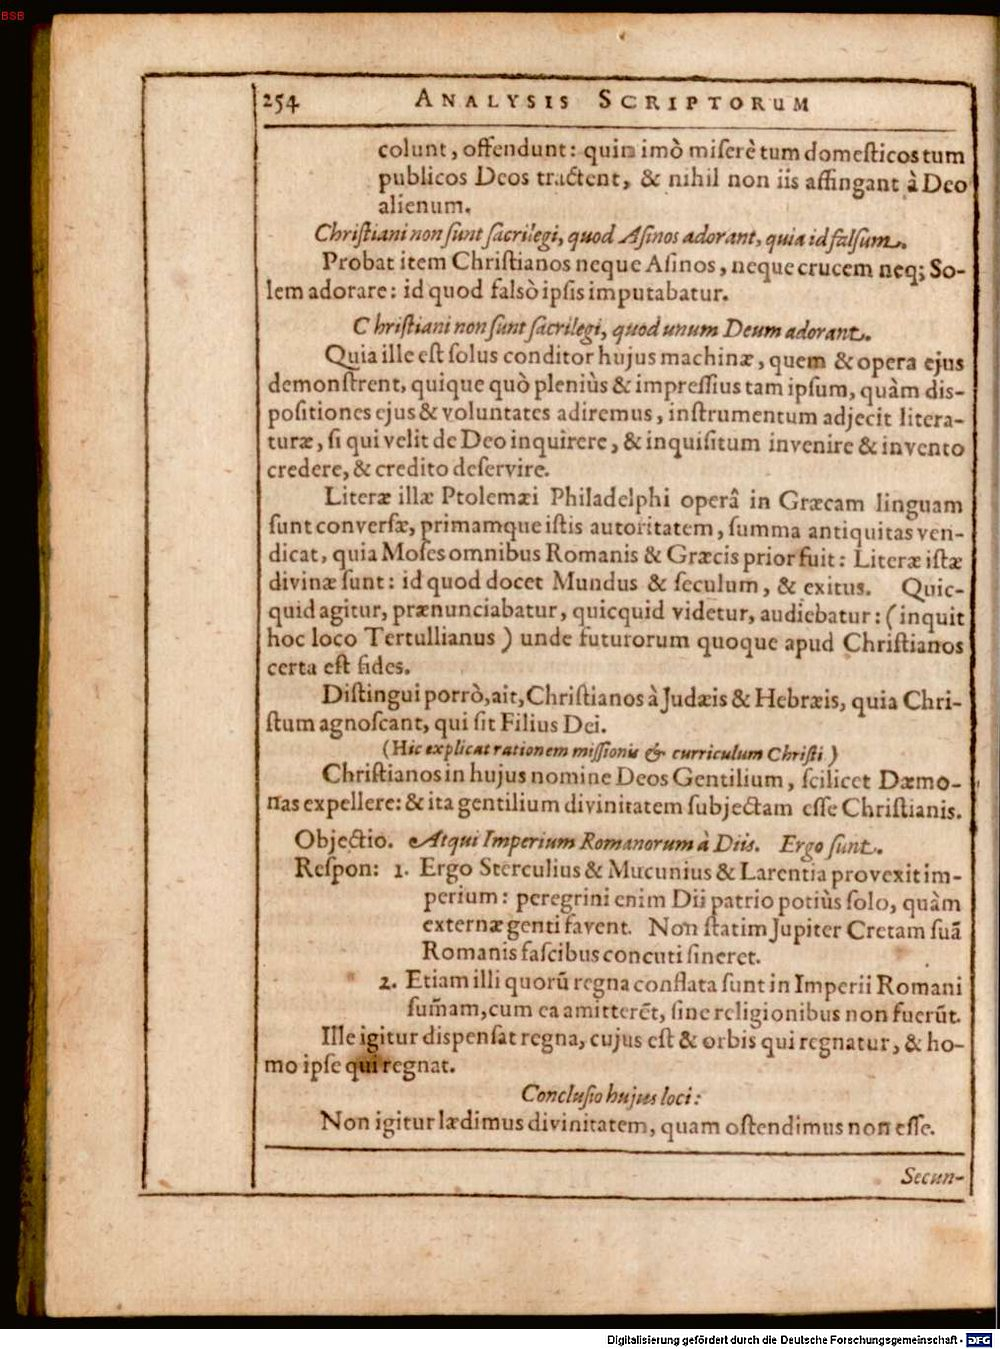 BSB
254 ANALYSIS SCRIPTORUM
colunt, offendunt: quin imò miserè tum domesticos tum
publicos Deos tractent, & nihil non iis affingant à Deo
alienum.
Christiani non sunt sacrilegi, quod Asinos adorant, quia id falsum.
Probat item Christianos neque Asinos, neque crucem neq; So-
lem adorare: id quod falsò ipsis imputabatur.
Christiani non sunt sacrilegi, quod unum Deum adorant.
Quia ille est solus conditor hujus machinæ, quem & opera ejus
demonstrent, quique quò pleniùs & impressius tam ipsum, quàm dis-
positiones ejus & voluntates adiremus, instrumentum adjecit litera-
turæ, si qui velit de Deo inquirere, & inquisitum invenire & invento
credere, & credito deservire.
Literæ illæ Ptolemæi Philadelphi operâ in Græcam linguam
sunt conversæ, primamque istis autoritatem, summa antiquitas ven-
dicat, quia Moses omnibus Romanis & Græcis prior fuit: Literæ istæ
divinæ sunt: id quod docet Mundus & seculum, & exitus. Quic-
quid agitur, prænunciabatur, quicquid videtur, audiebatur: (inquit
hoc loco Tertullianus) unde futurorum quoque apud Christianos
certa est fides.
Distingui porrò, ait, Christianos à Judæis & Hebræis, quia Chri-
stum agnoscant, qui sit Filius Dei.
(Hic explicat rationem missionis & curriculum Christi)
Christianos in hujus nomine Deos Gentilium, scilicet Dæmo-
nas expellere: & ita gentilium divinitatem subjectam esse Christianis.
Objectio. Atqui Imperium Romanorum à Diis. Ergo sunt.
Respon: 1. Ergo Sterculius & Mucunius & Larentia provexit im-
perium: peregrini enim Dii patrio potiùs solo, quàm
externæ genti favent. Non statim Jupiter Cretam suã
Romanis fascibus concuti sineret.
2. Etiam illi quorũ regna conflata sunt in Imperii Romani
sum̃am, cum ea amitterẽt, sine religionibus non fuerũt.
Ille igitur dispensat regna, cujus est & orbis qui regnatur, & ho-
mo ipse qui regnat.
Conclusio hujus loci:
Non igitur lædimus divinitatem, quam ostendimus non esse.
Secun-
Digitalisierung gefördert durch die Deutsche Forschungsgemeinschaft - DFG